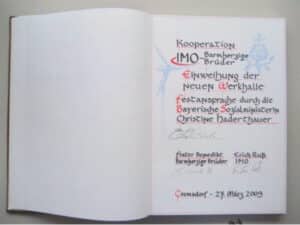 Kooperation
IMO - Barmherzige
Brüder
Einweihung der
neuen Werkhalle
Festansprache durch die
Bayerische Sozialministerin
Christine Haderthauer
Frater Benedikt Erich Ruß
Barmherzige Brüder IMO
- 27. März 2009